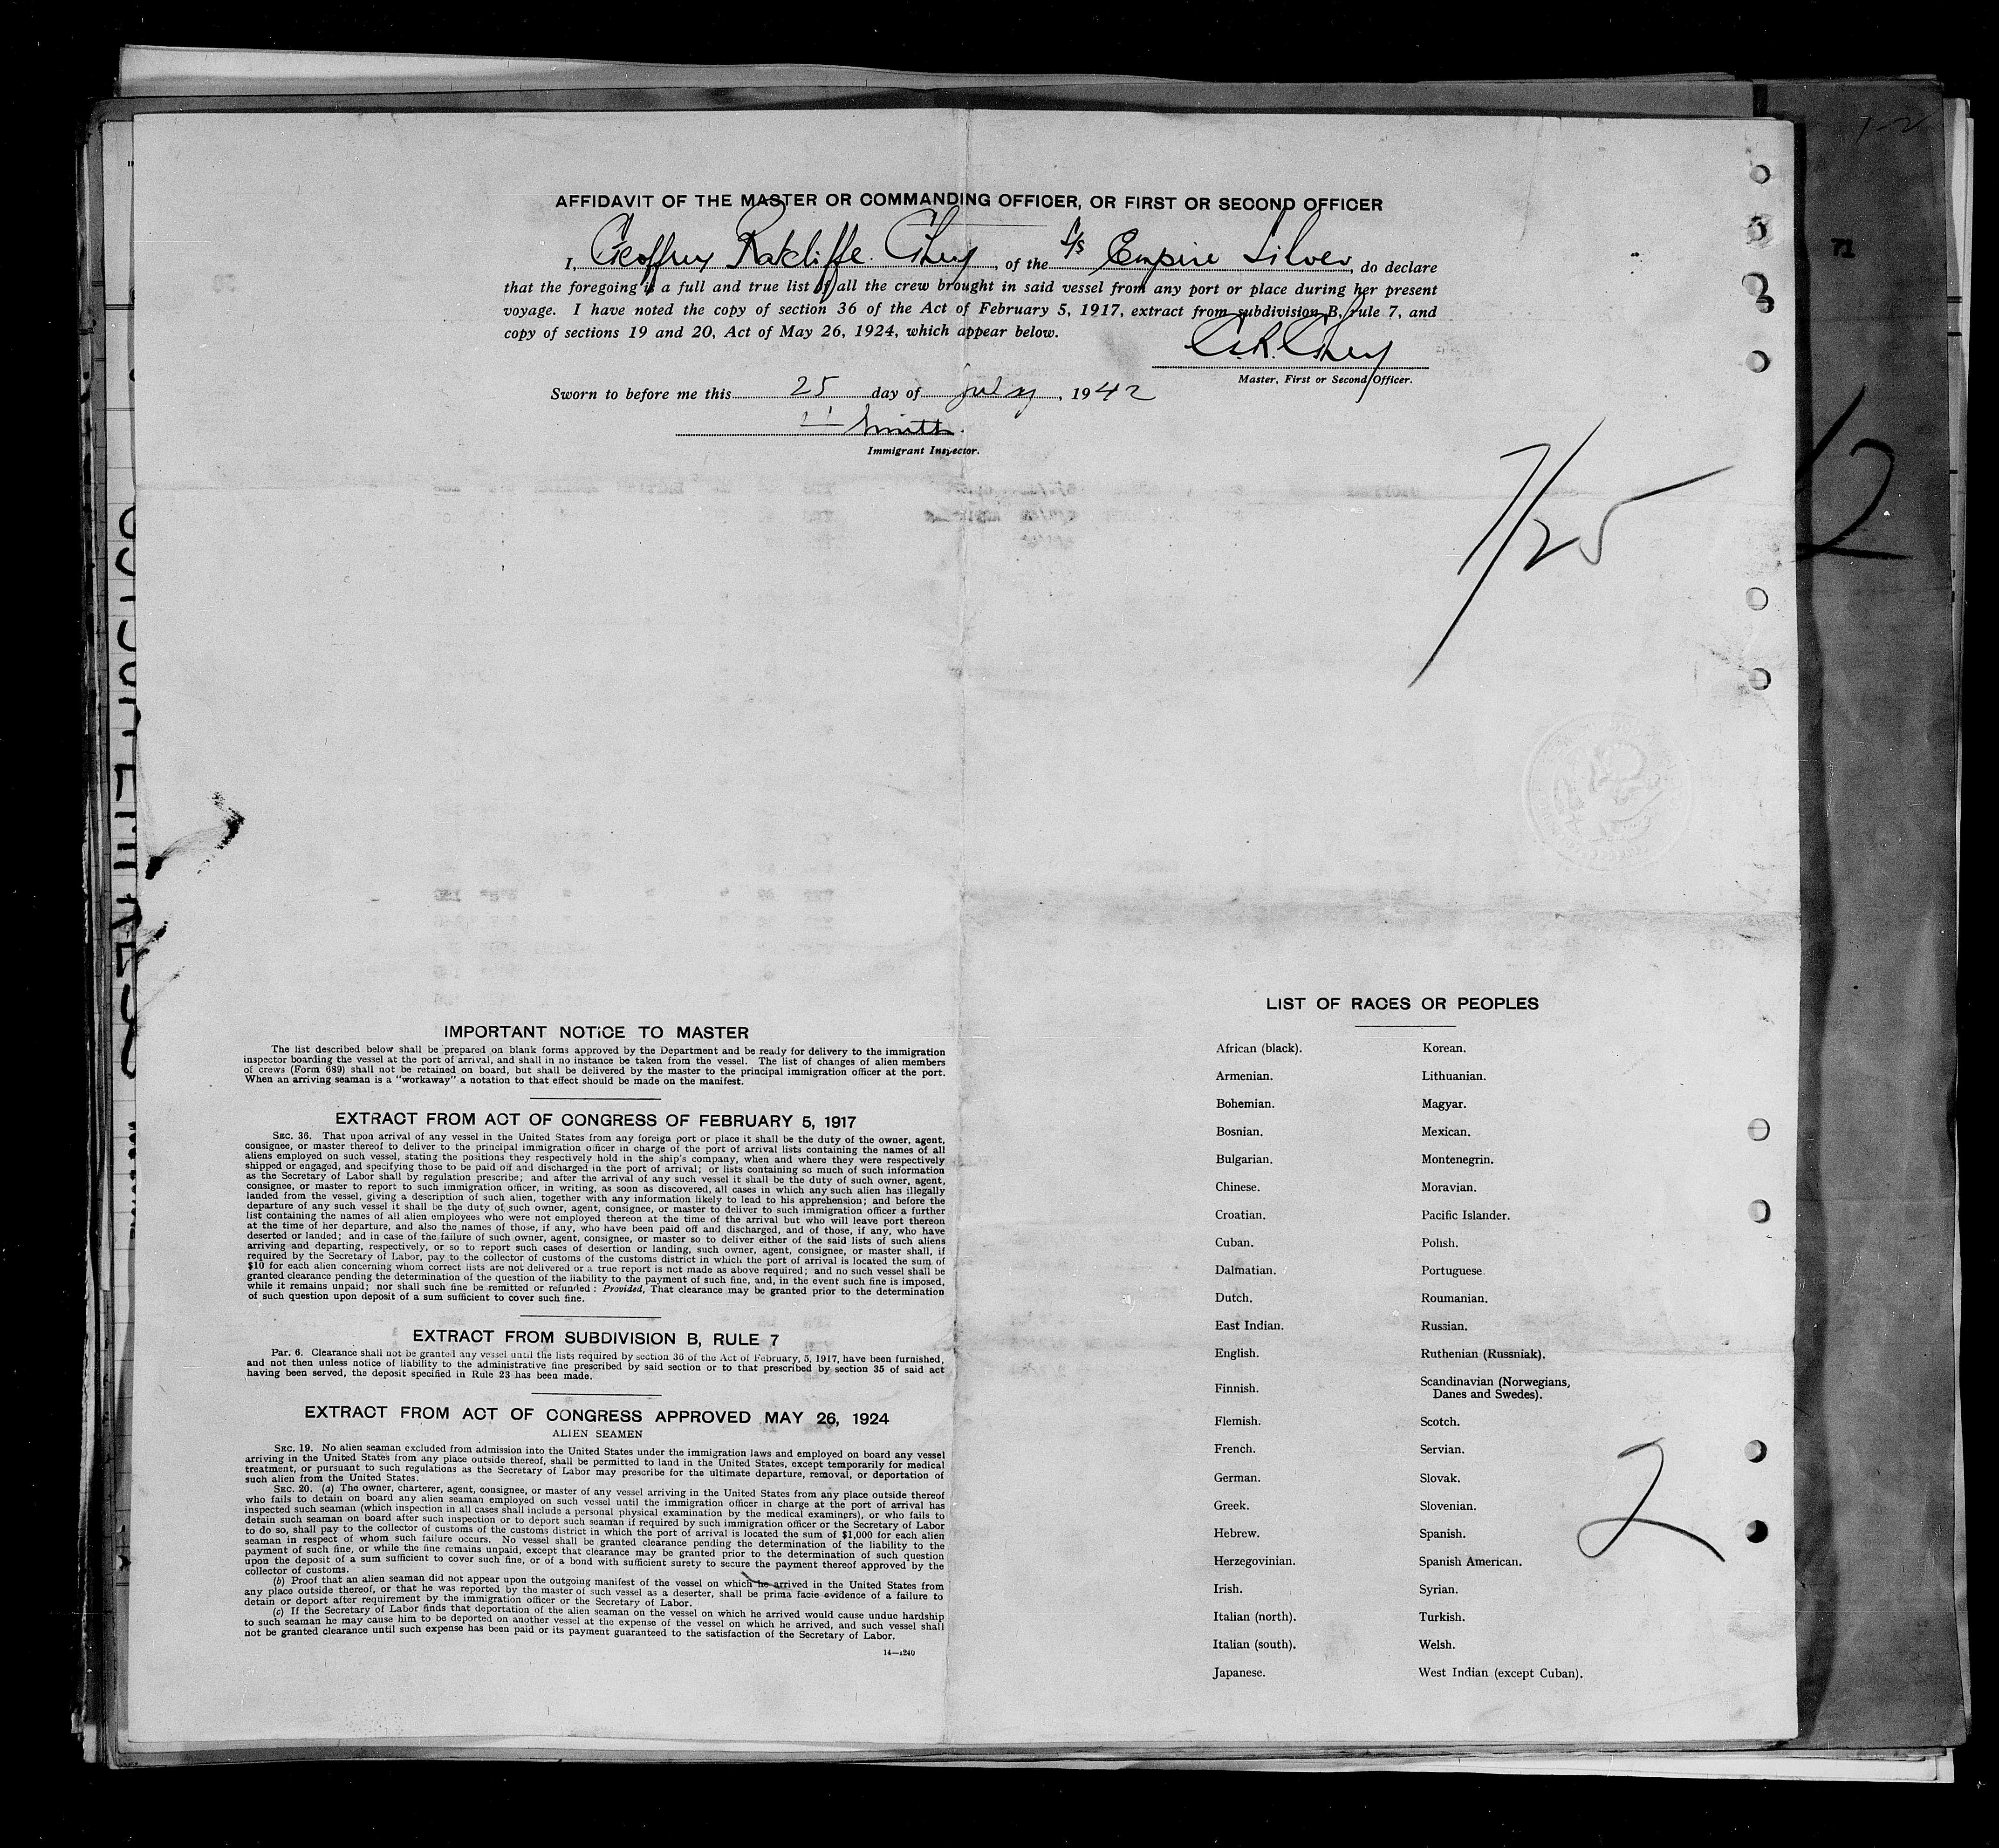 1-2
72
AFFIDAVIT OF THE MASTER OR COMMANDING OFFICER, OR FIRST OR SECOND OFFICER
I, Geoffrey Ratcliffe , of the S/s Empire Silver, do declare
that the foregoing is a full and true list of all the crew brought in said vessel from any port or place during her present
voyage. I have noted the copy of section 36 of the Act of February 5, 1917, extract from subdivision B, rule 7, and
copy of sections 19 and 20, Act of May 26, 1924, which appear below.
Master, First or Second Officer.
Sworn to before me this 25 day of July, 1942
Smith.
Immigrant Inspector.
7/25
2
IMPORTANT NOTICE TO MASTER
The list described below shall be prepared on blank forms approved by the Department and be ready for delivery to the immigration
inspector boarding the vessel at the port of arrival, and shall in no instance be taken from the vessel. The list of changes of alien members
of crews (Form 689) shall not be retained on board, but shall be delivered by the master to the principal immigration officer at the port.
When an arriving seaman is a "workaway" a notation to that effect should be made on the manifest.
EXTRACT FROM ACT OF CONGRESS OF FEBRUARY 5, 1917
SEC. 36. That upon arrival of any vessel in the United States from any foreign port or place it shall be the duty of the owner, agent,
consignee, or master thereof to deliver to the principal immigration officer in charge of the port of arrival lists containing the names of all
aliens employed on such vessel, stating the positions they respectively hold in the ship's company, when and where they were respectively
shipped or engaged, and specifying those to be paid off and discharged in the port of arrival; or lists containing so much of such information
as the Secretary of Labor shall by regulation prescribe; and after the arrival of any such vessel it shall be the duty of such owner, agent,
consignee, or master to report to such immigration officer, in writing, as soon as discovered, all cases in which any such alien has illegally
landed from the vessel, giving a description of such alien, together with any information likely to lead to his apprehension; and before the
departure of any such vessel it shall be the duty of such owner, agent, consignee, or master to deliver to such immigration officer a further
list containing the names of all alien employees who were not employed thereon at the time of the arrival but who will leave port thereon
at the time of her departure, and also the names of those, if any, who have been paid off and discharged, and of those, if any, who have
deserted or landed; and in case of the failure of such owner, agent, consignee, or master so to deliver either of the said lists of such aliens
arriving and departing, respectively, or so to report such cases of desertion or landing, such owner, agent, consignee, or master shall, if
required by the Secretary of Labor, pay to the collector of customs of the customs district in which the port of arrival is located the sum of
$10 for each alien concerning whom correct lists are not delivered or a true report is not made as above required; and no such vessel shall be
granted clearance pending the determination of the question of the liability to the payment of such fine, and, in the event such fine is imposed,
while it remains unpaid; nor shall such fine be remitted or refunded: Provided, That clearance may be granted prior to the determination
of such question upon deposit of a sum sufficient to cover such fine.
EXTRACT FROM SUBDIVISION B, RULE 7
Par. 6. Clearance shall not be granted any vessel until the lists required by section 36 of the Act of February, 5, 1917, have been furnished,
and not then unless notice of liability to the administrative fine prescribed by said section or to that prescribed by section 35 of said act
having been served, the deposit specified in Rule 23 has been made.
EXTRACT FROM ACT OF CONGRESS APPROVED MAY 26, 1924
ALIEN SEAMEN
SEC. 19. No alien seaman excluded from admission into the United States under the immigration laws and employed on board any vessel
arriving in the United States from any place outside thereof, shall be permitted to land in the United States, except temporarily for medical
treatment, or pursuant to such regulations as the Secretary of Labor may prescribe for the ultimate departure, removal, or deportation of
such alien from the United States.
SEC. 20. (a) The owner, charterer, agent, consignee, or master of any vessel arriving in the United States from any place outside thereof
who fails to detain on board any alien seaman employed on such vessel until the immigration officer in charge at the port of arrival has
inspected such seaman (which inspection in all cases shall include a personal physical examination by the medical examiners), or who fails to
detain such seaman on board after such inspection or to deport such seaman if required by such immigration officer or the Secretary of Labor
to do so, shall pay to the collector of customs of the customs district in which the port of arrival is located the sum of $1,000 for each alien
seaman in respect of whom such failure occurs. No vessel shall be granted clearance pending the determination of the liability to the
payment of such fine, or while the fine remains unpaid, except that clearance may be granted prior to the determination of such question
upon the deposit of a sum sufficient to cover such fine, or of a bond with sufficient surety to secure the payment thereof approved by the
collector of customs.
(b) Proof that an alien seaman did not appear upon the outgoing manifest of the vessel on which he arrived in the United States from
any place outside thereof, or that he was reported by the master of such vessel as a deserter, shall be prima facie evidence of a failure to
detain or deport after requirement by the immigration officer or the Secretary of Labor.
(c) If the Secretary of Labor finds that deportation of the alien seaman on the vessel on which he arrived would cause undue hardship
to such seaman he may cause him to be deported on another vessel at the expense of the vessel on which he arrived, and such vessel shall
not be granted clearance until such expense has been paid or its payment guaranteed to the satisfaction of the Secretary of Labor.
14—1240
LIST OF RACES OR PEOPLES
African (black).
Armenian.
Bohemian.
Bosnian.
Bulgarian.
Chinese.
Croatian.
Cuban.
Dalmatian.
Dutch.
East Indian.
English.
Finnish.
Flemish.
French.
German.
Greek.
Hebrew.
Herzegovinian.
Irish.
Italian (north).
Italian (south).
Japanese.
Korean.
Lithuanian.
Magyar.
Mexican.
Montenegrin.
Moravian.
Pacific Islander.
Polish.
Portuguese
Roumanian.
Russian.
Ruthenian (Russniak).
Scandinavian (Norwegians,
Danes and Swedes).
Scotch.
Servian.
Slovak.
Slovenian.
Spanish.
Spanish American.
Syrian.
Turkish.
Welsh.
West Indian (except Cuban).
2